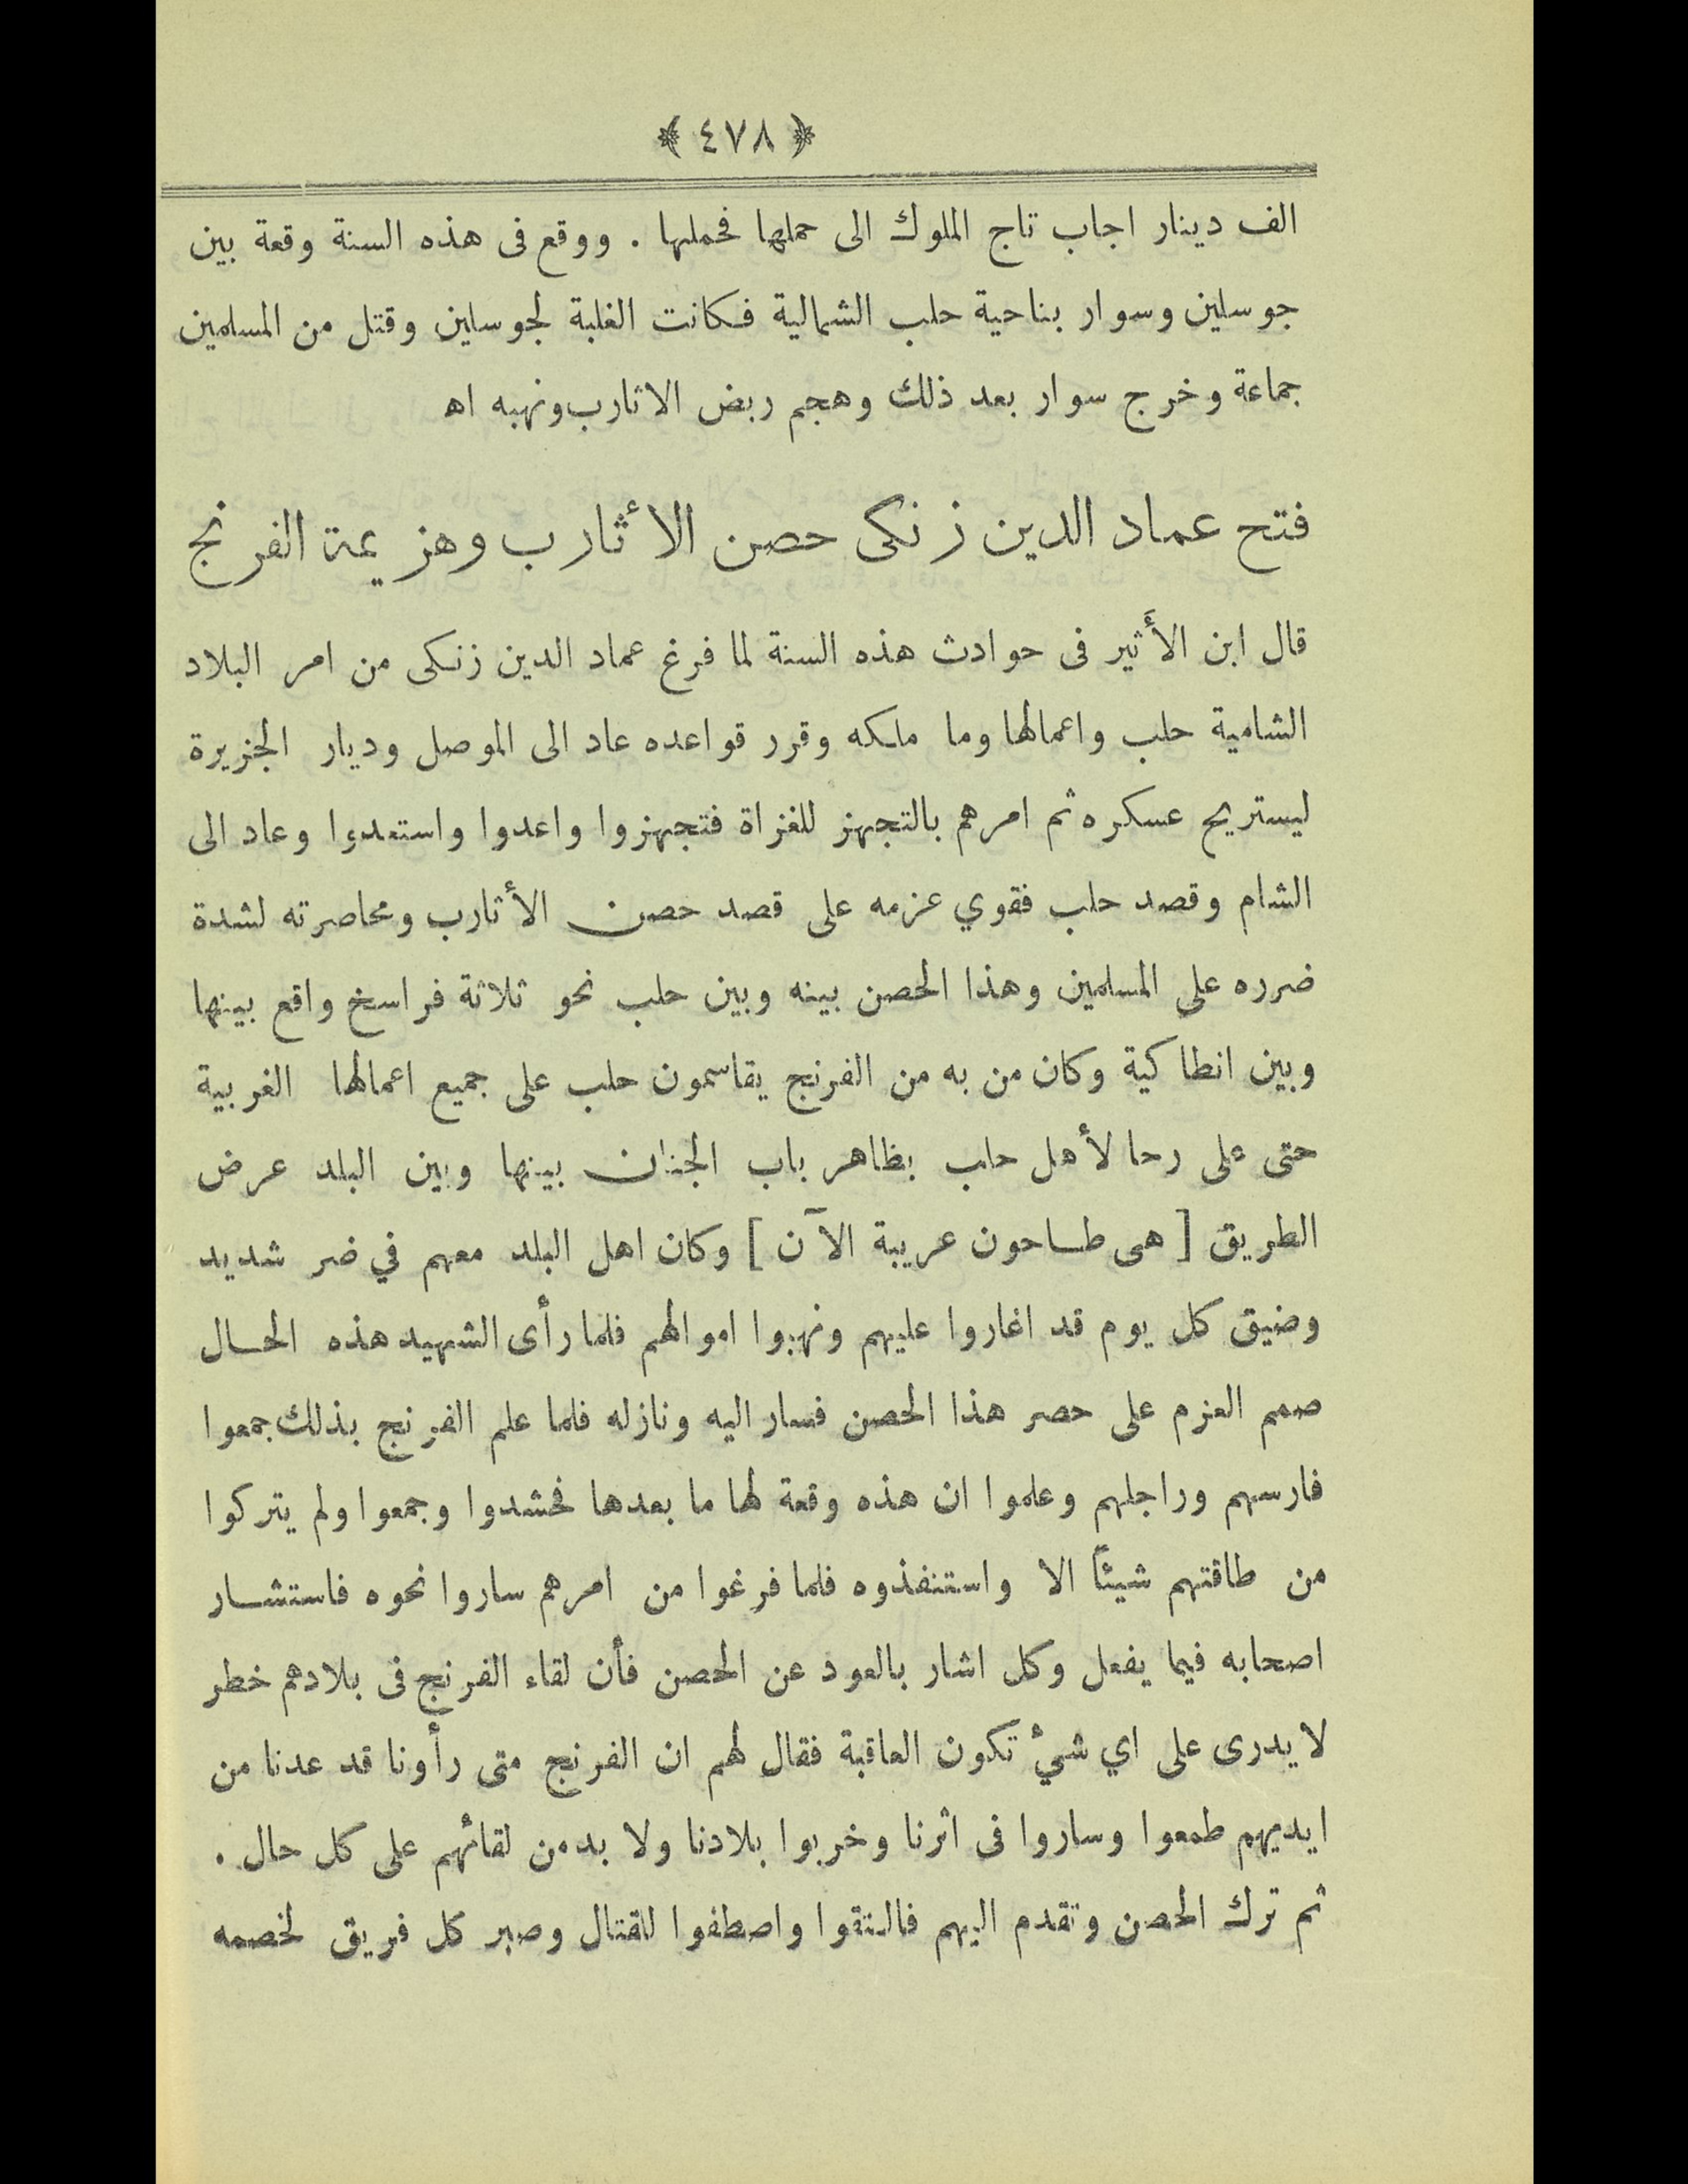 ﴿ ٤٧٨ ﴾
الف دينار اجاب تاج الملوك الى حملها فحملها . ووقع فى هذه السنة وقعة بين
جوسلين وسوار بناحية حلب الشمالية فكانت الغلبة لجوسلين وقتل من المسلمين
جماعة وخرج سوار بعد ذلك وهجم ربض الاثارب ونهبه اه
فتح عماد الدين زنكى حصن الأثارب وهزيمة الفرنج
قال ابن الأثير فى حوادث هذه السنة لما فرغ عماد الدين زنكى من امر البلاد
الشامية حلب واعمالها وما ملكه وقرر قواعده عاد الى الموصل وديار الجزيرة
ليستريح عسكره ثم امرهم بالتجهز للغزاة فتجهزوا واعدوا واستعدوا وعاد الى
الشام وقصد حلب فقوي عزمه على قصد حصن الأثارب ومحاصرته لشدة
ضرره على المسلمين وهذا الحصن بينه وبين حلب نحو ثلاثة فراسخ واقع بينها
وبين انطاكية وكان من به من الفرنج يقاسمون حلب على جميع اعمالها الغربية
حتى على رحا لأهل حلب بظاهر باب الجنان بينها وبين البلد عرض
الطريق [ هى طاحون عريبة الآن ] وكان اهل البلد معهم في ضر شديد
وضيق كل يوم قد اغاروا عليهم ونهبوا اموالهم فلما رأى الشهيد هذه الحال
صمم العزم على حصر هذا الحصن فسار اليه ونازله فلما علم الفرنج بذلك جمعوا
فارسهم وراجلهم وعلموا ان هذه وقعة لها ما بعدها فحشدوا وجمعوا ولم يتركوا
من طاقتهم شيئاً الا واستنفذوه فلما فرغوا من امرهم ساروا نحوه فاستشار
اصحابه فيما يفعل وكل اشار بالعود عن الحصن فأن لقاء الفرنج فى بلادهم خطر
لا يدرى على اي شيْ تكون العاقبة فقال لهم ان الفرنج متى رأونا قد عدنا من
ايديهم طمعوا وساروا فى اثرنا وخربوا بلادنا ولا بد من لقائهم على كل حال .
ثم ترك الحصن وتقدم اليهم فالتقوا واصطفوا للقتال وصبر كل فريق لخصمه